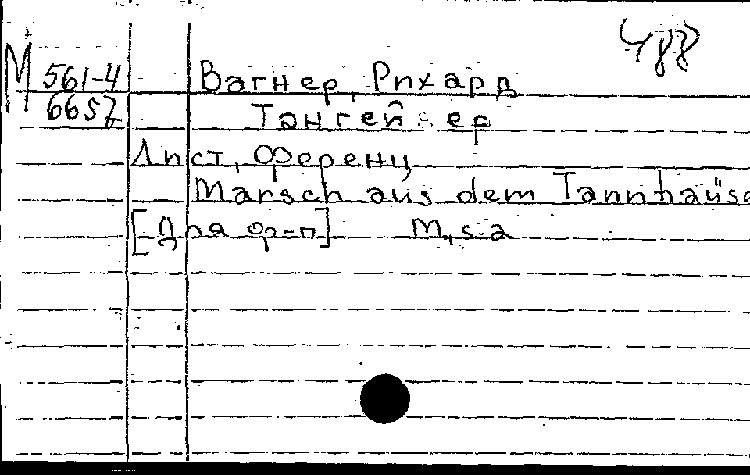 488
М 561-4 Вагнер, Рихард
6657 Тангейзер
Лист, Ференц
Marsch aus dem Tannhäuse
[Для ф-п] M, s.a